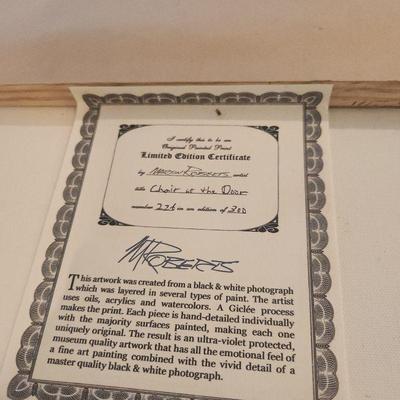 I certify this to be an
Original Painted Print
Limited Edition Certificate
by Marion Roberts artist
title Chair at the Door
number 226 in an edition of 300
M Roberts
This artwork was created from a black & white photograph
which was layered in several types of paint. The artist
uses oils, acrylics and watercolors. A Giclée process
makes the print. Each piece is hand-detailed individually
with the majority surfaces painted, making each one
uniquely original. The result is an ultra-violet protected,
museum quality artwork that has all the emotional feel of
a fine art painting combined with the vivid detail of a
master quality black & white photograph.